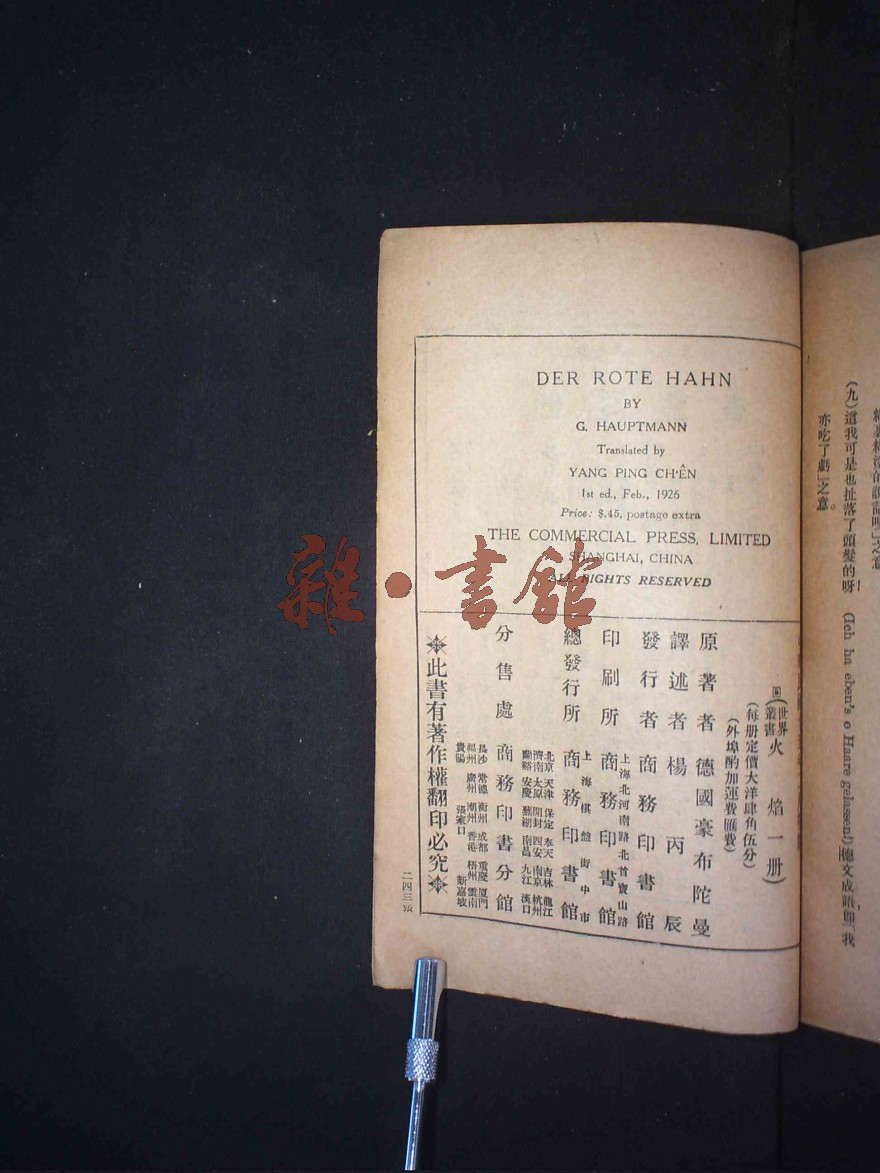 DER ROTE HAHN
BY
G. HAUPTMANN
Translated by
YANG PING CH'ÊN
1st ed., Feb., 1926
Price: $.45, postage extra
THE COMMERCIAL PRESS, LIMITED
SHANGHAI, CHINA
ALL RIGHTS RESERVED
雜·書館
世界叢書
火焰一册
(每册定價大洋肆角伍分)
(外埠酌加運費匯費)
原著者 德國豪布陀曼
譯述者 楊丙辰
發行者 商務印書館
印刷所 商務印書館
上海北河南路北首寶山路
總發行所 商務印書館
上海棋盤街中市
分售處 商務印書分館
北京 天津 保定 奉天 吉林 龍江
濟南 太原 開封 西安 南京 杭州
蘭谿 安慶 蕪湖 南昌 九江 漢口
長沙 常德 衡州 成都 重慶 厦門
福州 廣州 潮州 香港 梧州 雲南
貴陽 張家口 新嘉坡
此書有著作權翻印必究
二四三張
(九)這我可是也扯落了頭髮的呀! (Ich ha eben's o Haare gelassen!)德文成語,卽「我
亦吃了虧」之意。